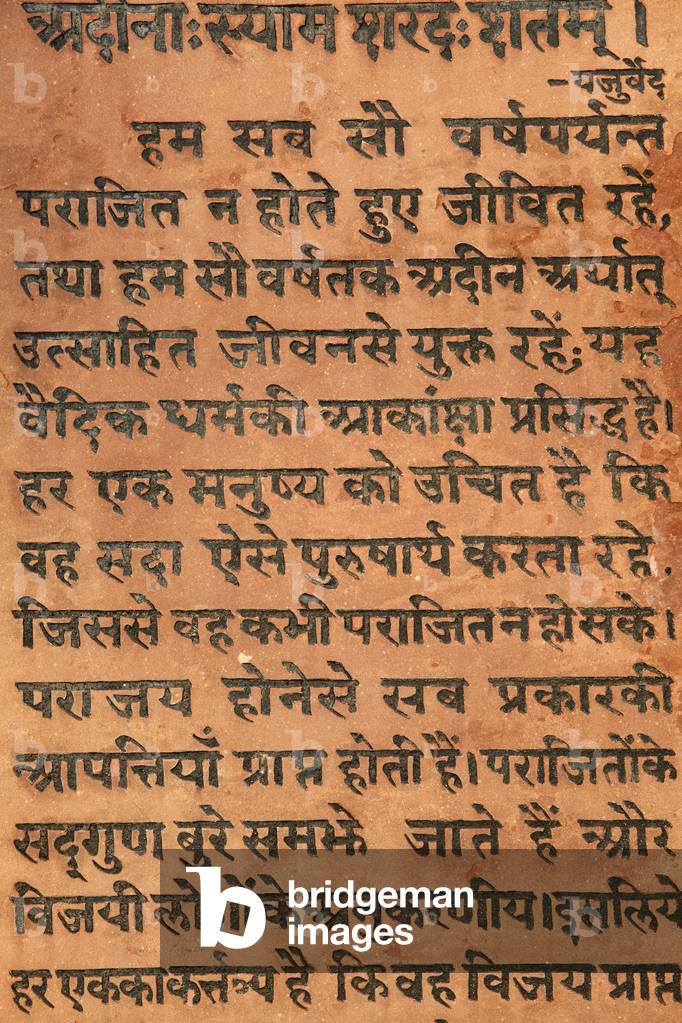 अदीनाःस्याम शरदःशतम् ।
–यजुर्वेद
हम सब सौ वर्षपर्यन्त
पराजित न होते हुए जीवित रहें,
तथा हम सौ वर्षतक अदीन अर्थात्
उत्साहित जीवनसे युक्त रहें; यह
वैदिक धर्मकी आकांक्षा प्रसिद्ध है।
हर एक मनुष्य को उचित है कि
वह सदा ऐसे पुरुषार्थ करता रहे.
जिससे वह कभी पराजित न हो सके।
पराजय होनेसे सब प्रकारकी
आपत्तियाँ प्राप्त होती हैं। पराजितोंके
सद्गुण बुरे समझे जाते हैं और
विजयी
हर एकका कर्त्तव्य है कि वह विजय प्राप्त
bridgeman
images